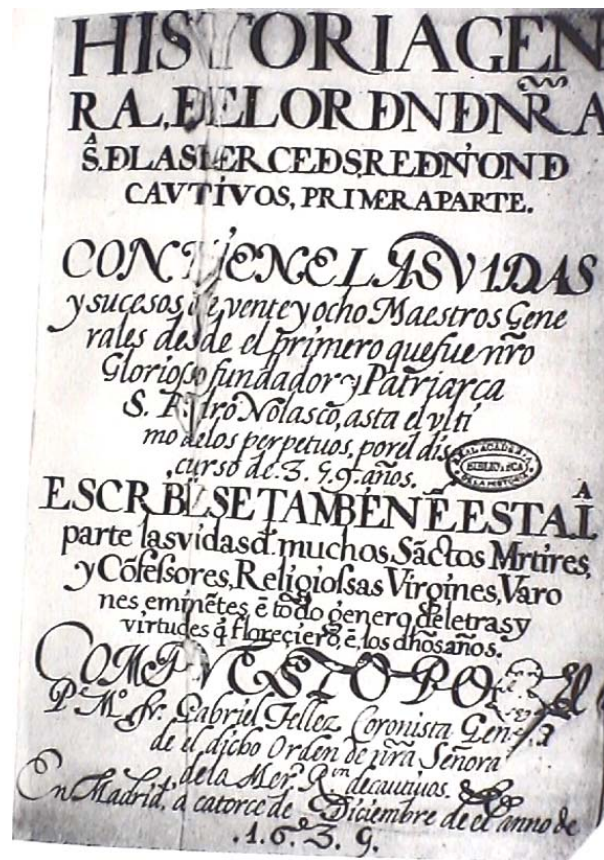 HISTORIA GEN
RA, ĐEL ORĐN ĐNR̃A
Sᴬ. Đ LAS MERCEĐS, REĐNᶜION Đ
CAVTIVOS, PRIMERA PARTE.
CONTIENE LAS VIDAS
y sucesos de vente y ocho Maestros Gene
rales desde el primero que fue nr̃o
Glorioſo fundador y Patriarca
S. Pedro Nolasco, asta el vlti
mo de los perpetuos, por el dis
curso de. 3. 9. 9. años.
REAL ACADEM.
BIBLIOTECA
DE LA HISTORIA
ESCRIBESE TAMBIEN Ẽ ESTA Iᴬ
parte las vidas đ. muchos Sãctos Mrtires,
y Cõfeſsores, Religioſsas Virgines, Varo
nes eminẽtes ẽ tõdo genero de letras y
virtudes q̃ floreçierõ, ẽ, los dhõs años.
COMPVESTO POR El
P. Mº. fr. Gabriel Tellez Coronista Gen
de el dicho Orden de nr̃a Señora
de la Merᵈ Rᵒⁿ de cautiuos.
En Madrid, a catorce de Diciembre de el anno de
.1.6.3.9.